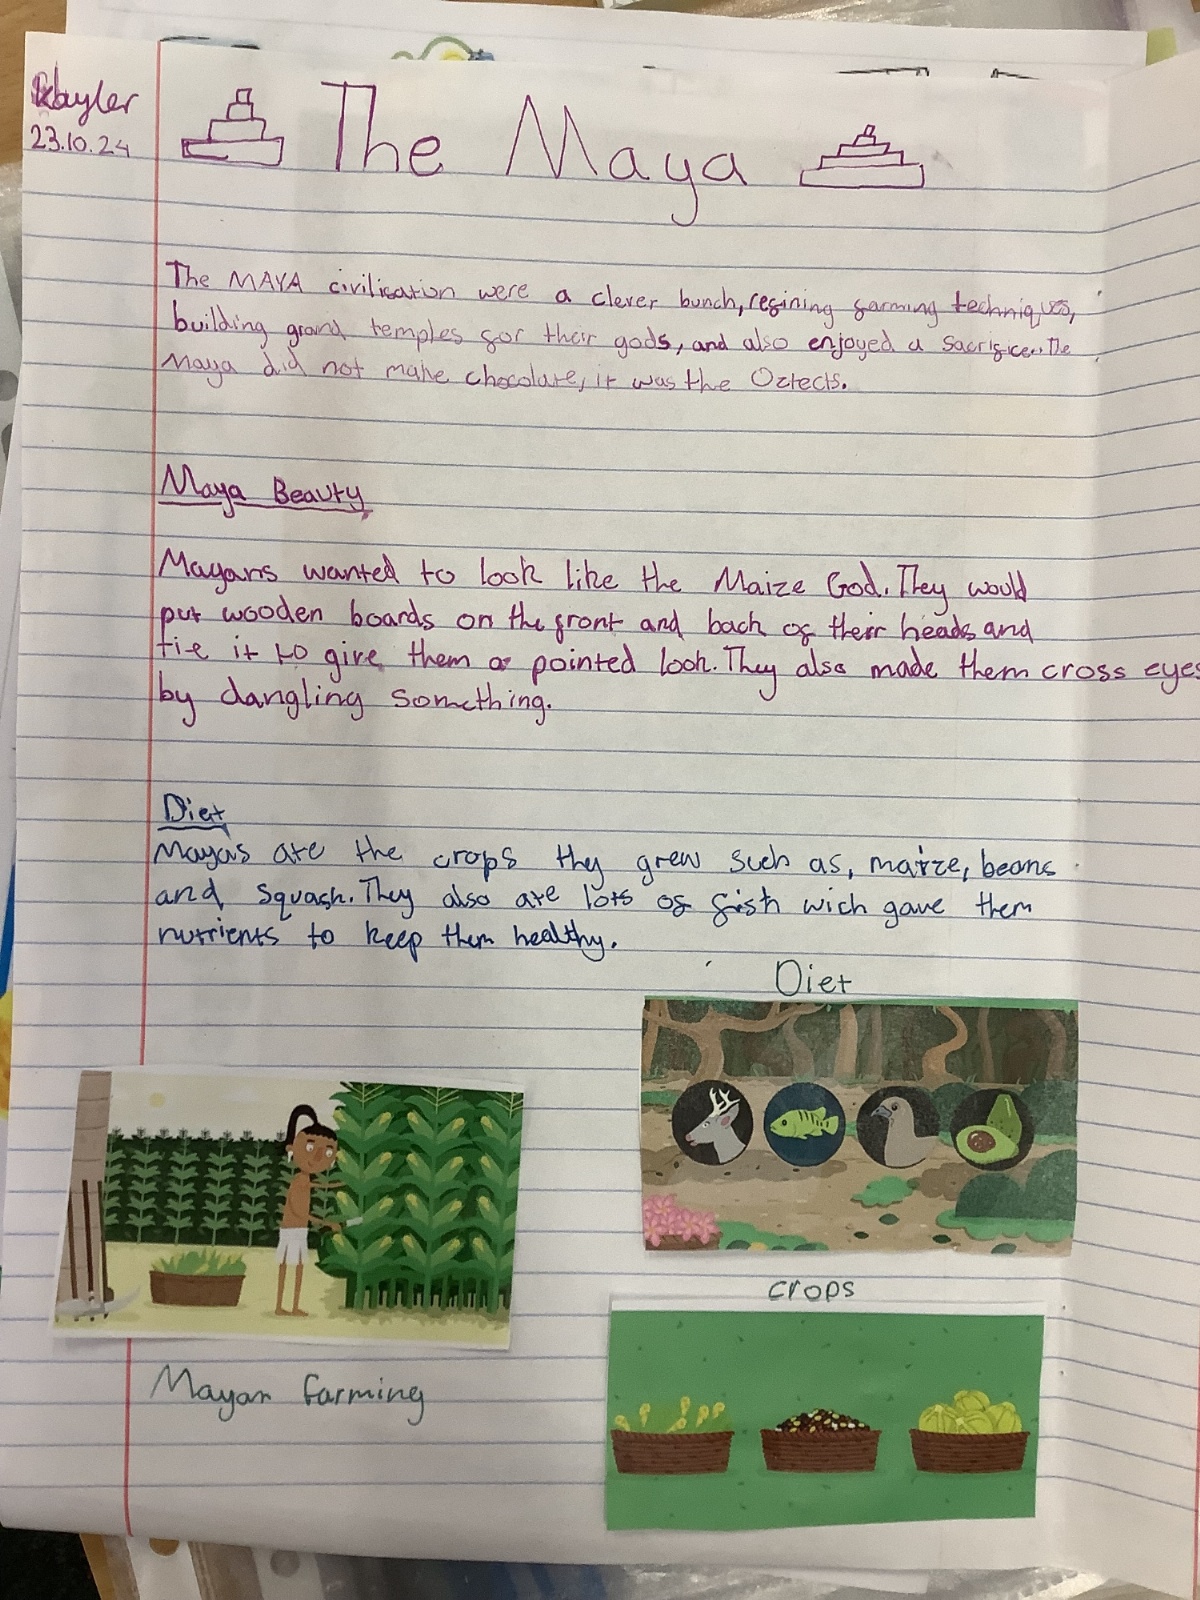 Kayler
23.10.24
The Maya
The MAYA civilisation were a clever bunch, refining farming techniques,
building grand temples for their gods, and also enjoyed a sacrifice. The
Maya did not make chocolate, it was the Oztecs.
Maya Beauty
Mayans wanted to look like the Maize God. They would
put wooden boards on the front and back of their heads and
tie it to give them a pointed look. They also made them cross eyes
by dangling something.
Diet
Mayas ate the crops they grew such as, maize, beans
and squash. They also ate lots of fish wich gave them
nutrients to keep them healthy.
Diet
crops
Mayan farming